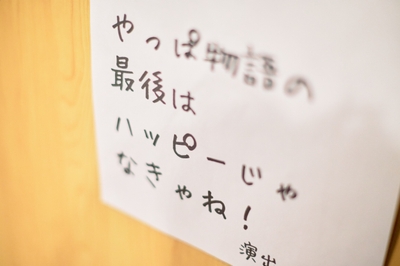 やっぱ物語の
最後は
ハッピーじゃ
なきゃね！
演出